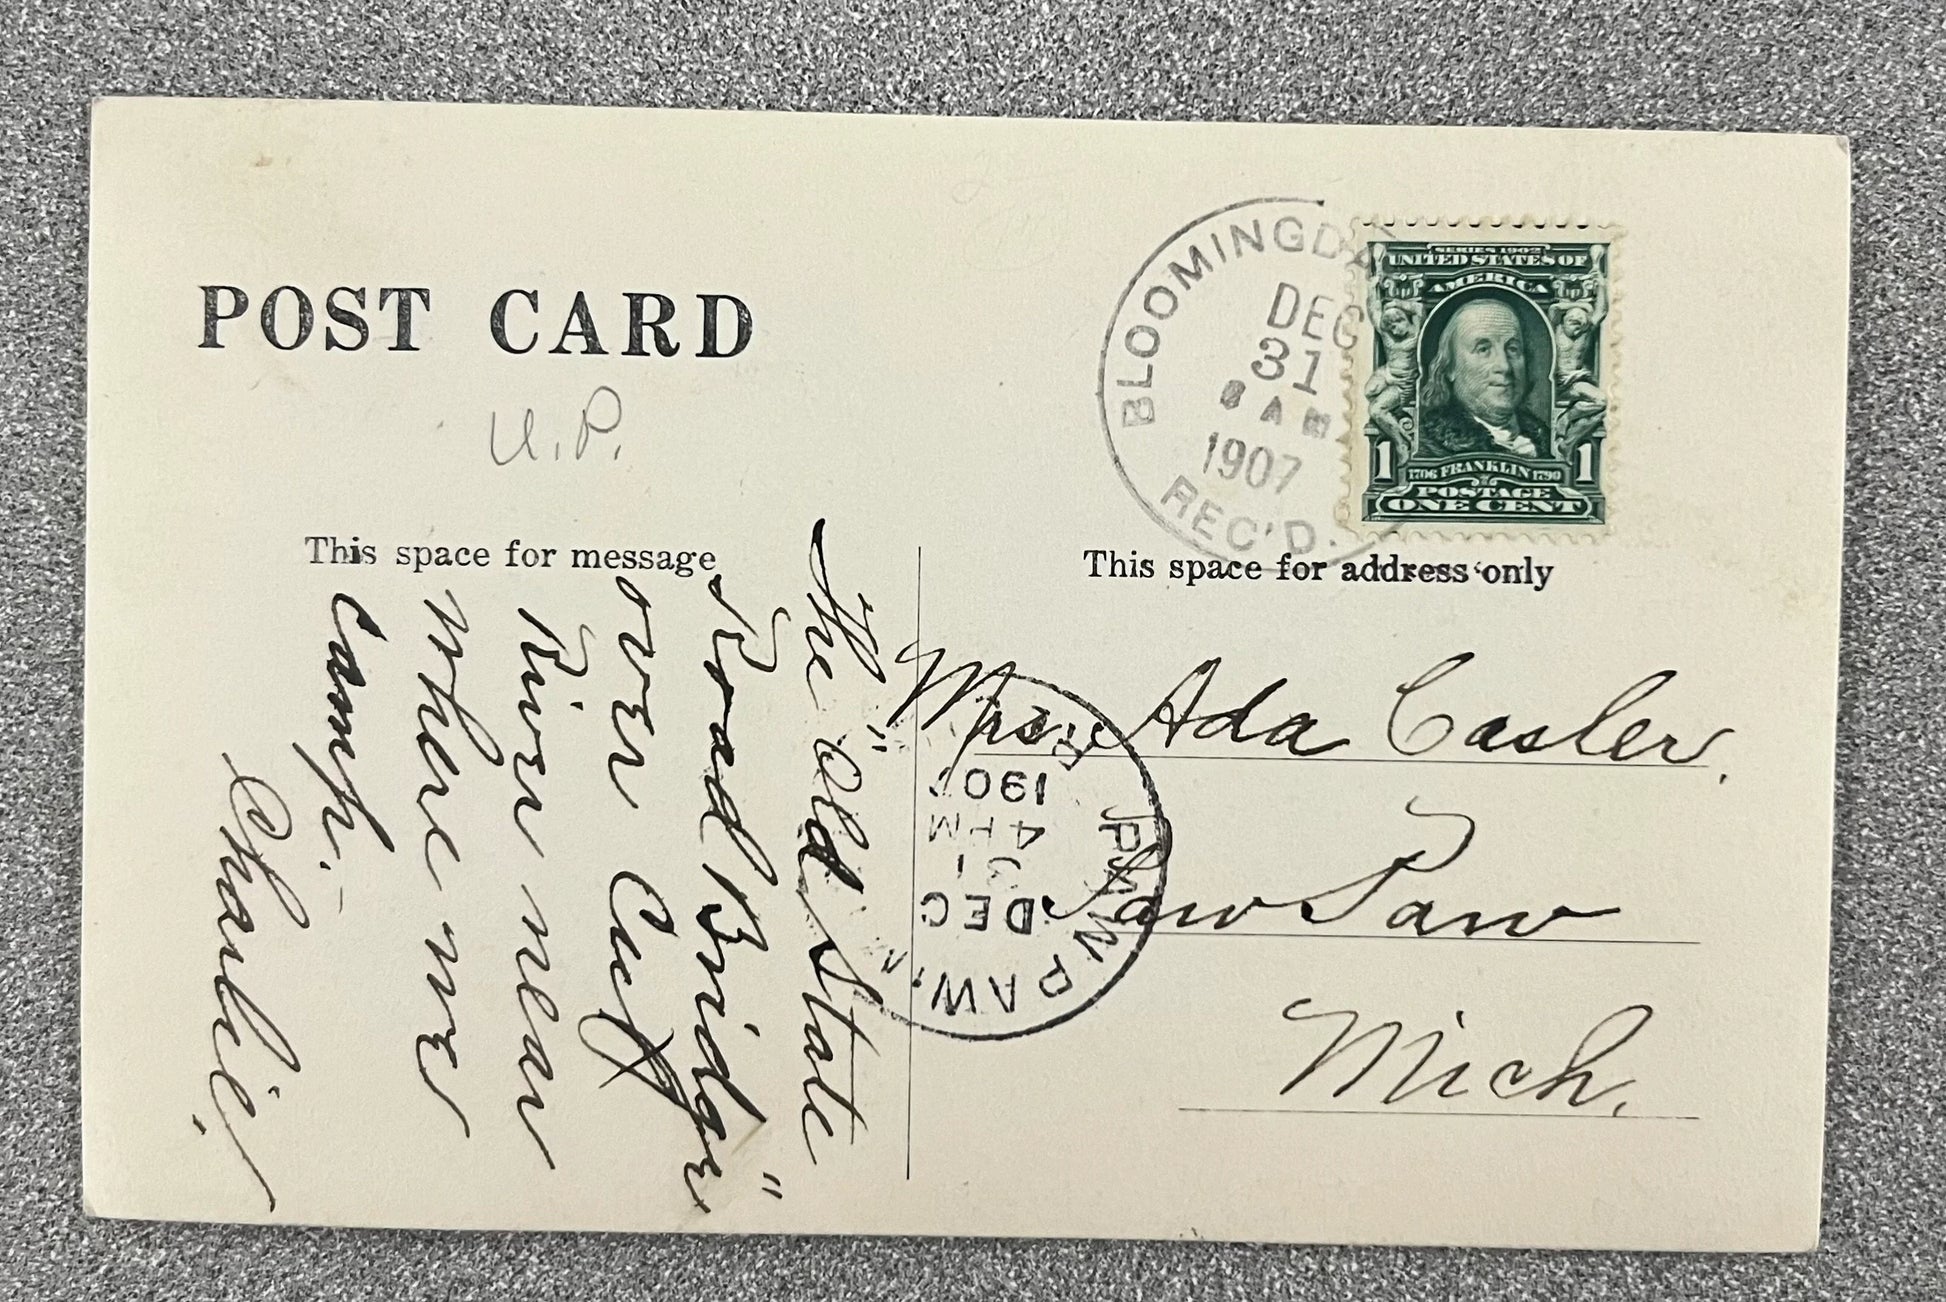 POST CARD
U.P.
This space for message
The "Old State
Road Bridge"
over Cut
River near
where we
camp.-
Charlie.
BLOOMINGDA
DEC
31
8 AM
1907
REC'D.
SERIES 1902
UNITED STATES OF
AMERICA
1 1
1706 FRANKLIN 1790
POSTAGE
ONE CENT
This space for address only
Mrs. Ada Casler.
Paw Paw
Mich.
PAW PAW, M
DEC
31
4 PM
1907